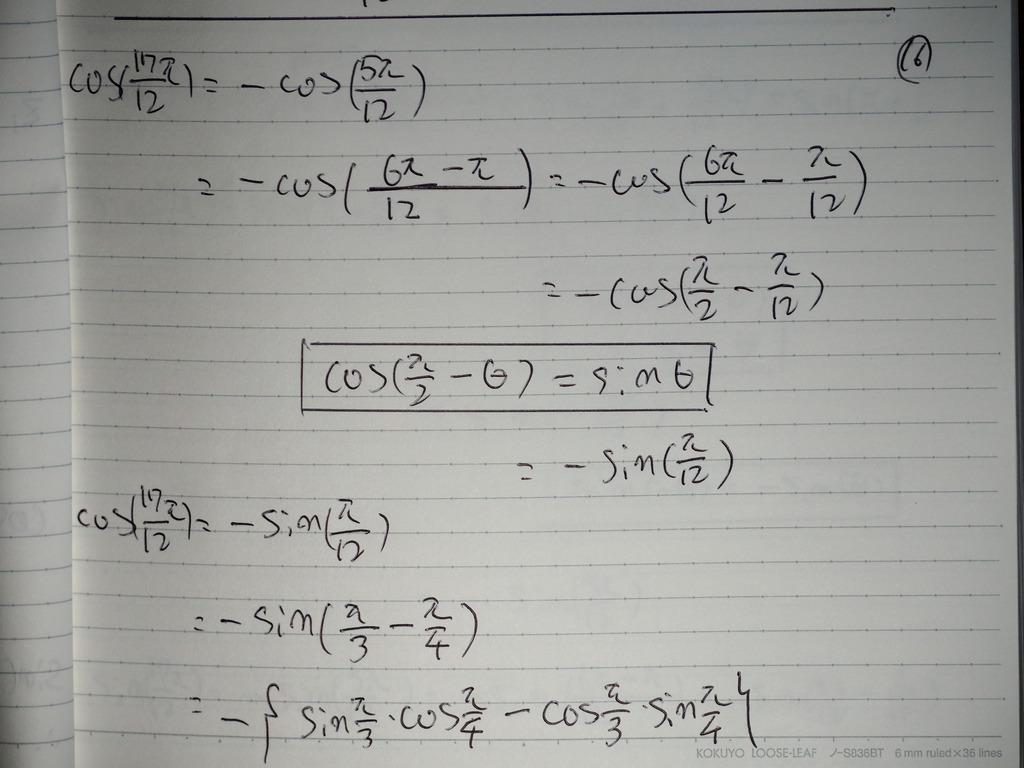 (6)
cos(17π/12) = - cos(5π/12)
= - cos((6π - π)/12) = - cos(6π/12 - π/12)
= - cos(π/2 - π/12)
cos(π/2 - θ) = sin θ
= - sin(π/12)
cos(17π/12) = - sin(π/12)
= - sin(π/3 - π/4)
= - { sin π/3 · cos π/4 - cos π/3 · sin π/4 }
KOKUYO LOOSE-LEAF ノ-S836BT 6 mm ruled×36 lines